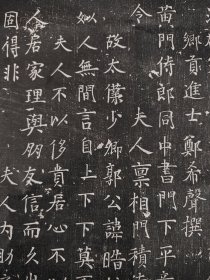 鄉貢進士鄭希聲撰
黃門侍郎同中書門下平
令 夫人禀相門積
故太僕少卿郭公諱晤
如人無閒言自上下下莫
夫人不以侈貴居心不
人君家理與朋友信而久
固得非 夫人內助